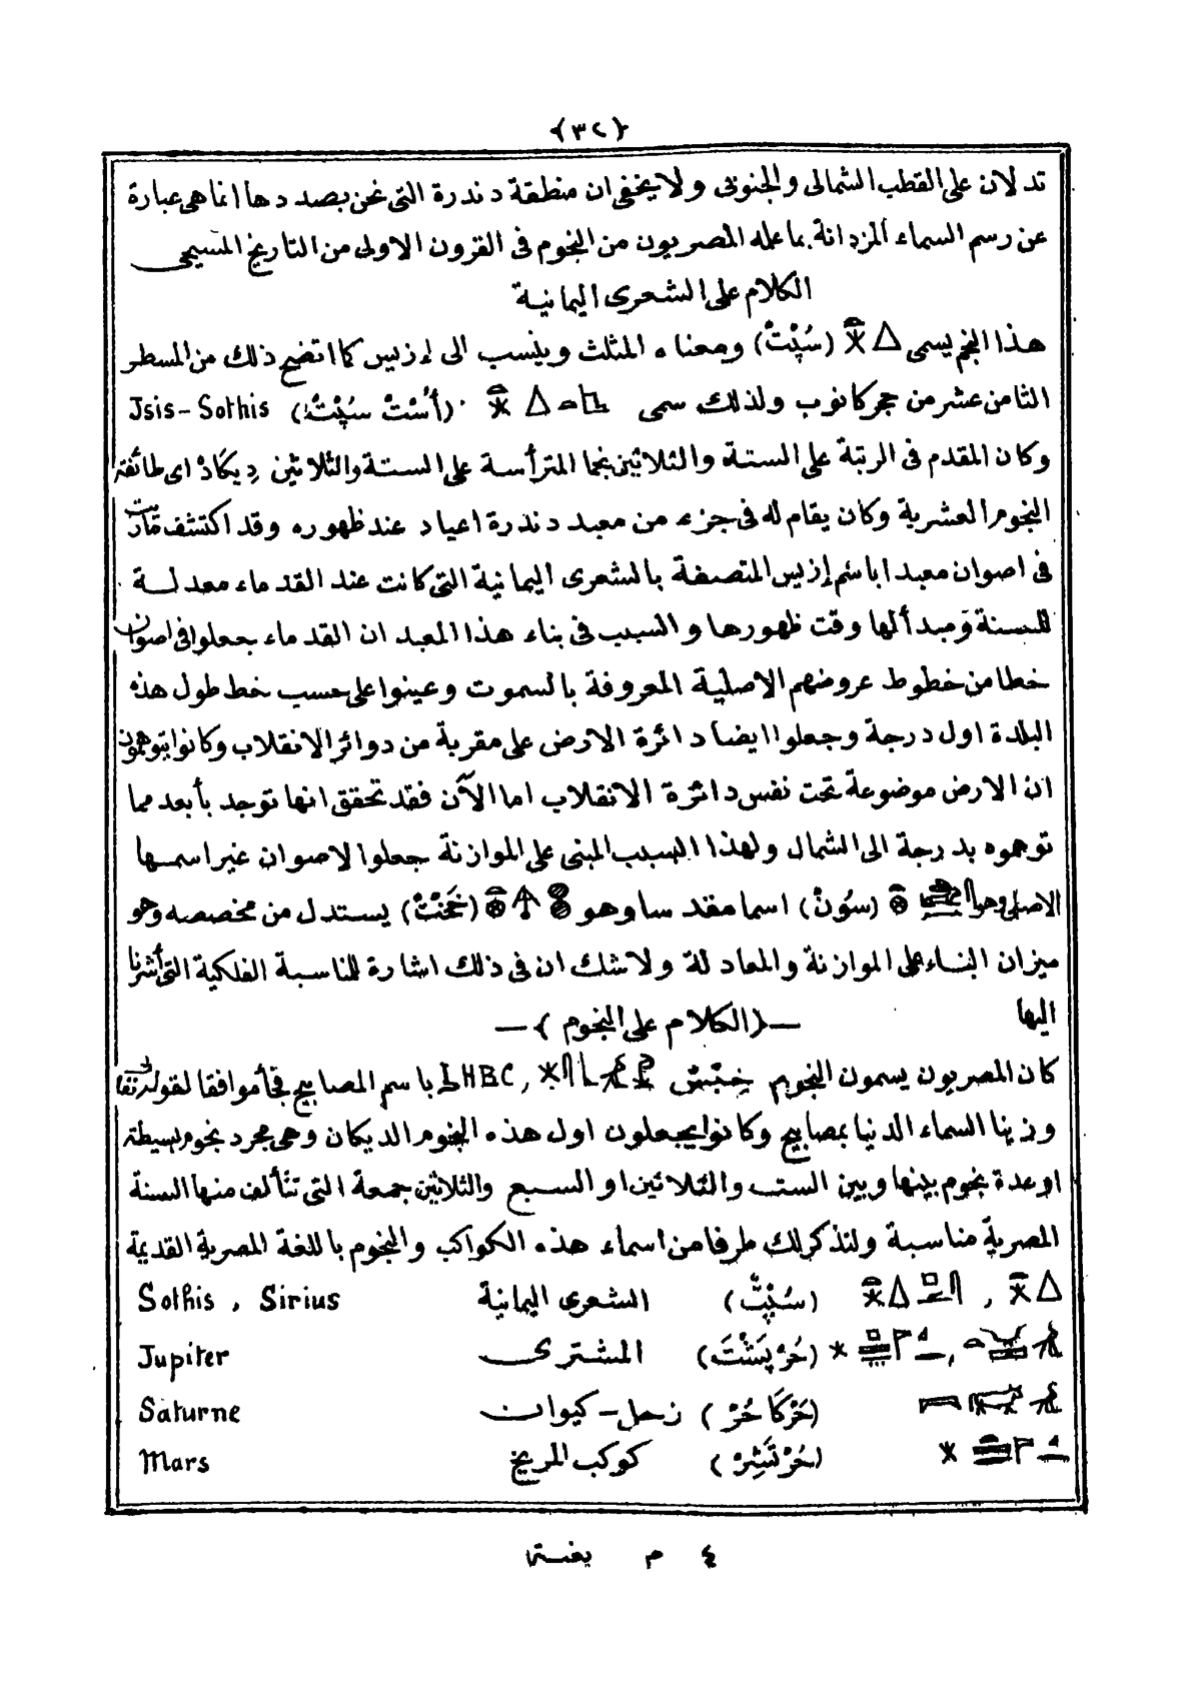 ﴿٣٢﴾
تدلان على القطب الشمالى والجنوبى ولا يخفى ان منطقة دندرة التى نحن بصددها انما هى عبارة
عن رسم السماء المزدانة بما عمله المصريون من النجوم فى القرون الاولى من التاريخ المسيحى
الكلام على الشعرى اليمانية
هذا النجم يسمى (سُپْتْ) ومعناه المثلث وينسب الى إزيس كما اتضح ذلك من المسطر
الثامن عشر من حجر كانوب ولذلك سمى (أُسْتْ سُپْتْ) Jsis-Sothis
وكان المقدم فى الرتبة على الستة والثلاثين نجما المترأسة على الستة والثلاثين دِيكَادْ اى طائفة
النجوم العشرية وكان يقام له فى جزء من معبد دندرة اعياد عند ظهوره وقد اكتشف ماريت
فى اصوان معبدا باسم إزيس المتصفة بالشعرى اليمانية التى كانت عند القدماء معدلة
للسنة ومبدألها وقت ظهورها والسبب فى بناء هذا المعبد ان القدماء جعلوا فى اصوان
خطا من خطوط عروضهم الاصلية المعروفة بالسموت وعينوا على حسب خط طول هذه
البلدة اول درجة وجعلوا ايضا دائرة الارض على مقربة من دوائر الانقلاب وكانوا يتوهمون
ان الارض موضوعة تحت نفس دائرة الانقلاب اما الآن فقد تحقق انها توجد بأبعد مما
توهموه بدرجة الى الشمال ولهذا السبب المبنى على الموازنة جعلوا لاصوان غير اسمها
الاصلى وهو (سُونْ) اسما مقدسا وهو (خَنْتْ) يستدل من مخصصه وهو
ميزان البناء على الموازنة والمعادلة ولا شك ان فى ذلك اشارة للناسبة الفلكية التى أشرنا
اليها
—(الكلام على النجوم)—
كان المصريون يسمون النجوم خِبْسْ HBC, باسم المصابيح فجأ موافقا لقوله تعالى
وزينا السماء الدنيا بمصابيح وكانوا يجعلون اول هذه النجوم الديكان وهى مجرد نجوم بسيطة
او عدة نجوم بينها وبين الست والثلاثين او السبع والثلاثين جمعة التى تتألف منها السنة
المصرية مناسبة ولنذكر لك طرفا من اسماء هذه الكواكب والنجوم باللغة المصرية القديمة
(سُپْتْ) الشعرى اليمانية Sothis , Sirius
(حُرْ پَشْتَ) المشترى Jupiter
(حَرْكَا حُرْ) زحل - كيوان Saturne
(حُرْتَشِرْ) كوكب المريخ Mars
٤ م